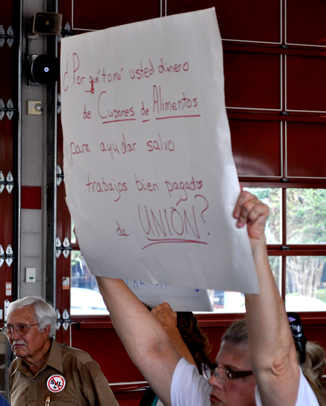 ¿Por qué tomó usted dinero
de Cupones de Alimentos
para ayudar salvo
trabajos bien pagados
de UNIÓN?